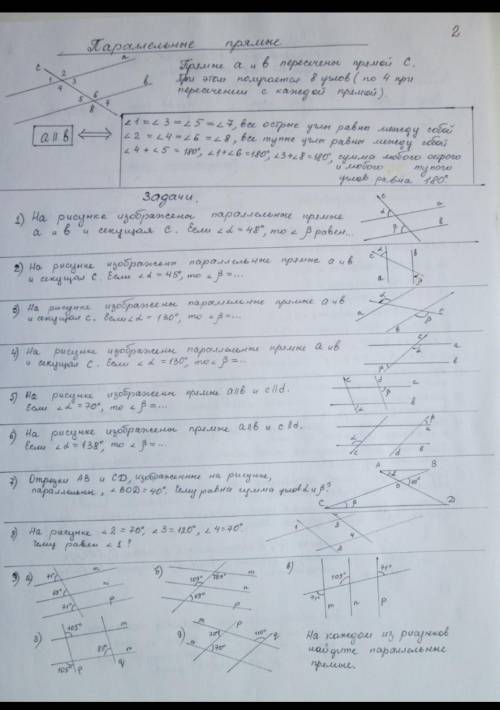 2
Параллельные прямые
Прямые a и b пересечены прямой C.
При этом получается 8 углов (по 4 при
пересечении с каждой прямой).
c
a
b
1 2 3 4
5 6 7 8
a || b
∠1=∠3=∠5=∠7, все острые углы равны между собой
∠2=∠4=∠6=∠8, все тупые углы равны между собой
∠4+∠5=180°, ∠1+∠6=180°, ∠3+∠8=180°, сумма любого острого
и любого тупого
углов равна 180°
Задачи.
1) На рисунке изображены параллельные прямые
a и b и секущая C. Если ∠α=48°, то ∠β равен...
2) На рисунке изображены параллельные прямые a и b
и секущая C. Если ∠α=45°, то ∠β=...
3) На рисунке изображены параллельные прямые a и b
и секущая c. Если ∠α=130°, то ∠β=...
4) На рисунке изображены параллельные прямые a и b
и секущая C. Если ∠α=130°, то ∠β=...
5) На рисунке изображены прямые a||b и c||d.
Если ∠α=70°, то ∠β=...
6) На рисунке изображены прямые a||b и c||d.
Если ∠α=138°, то ∠β=...
7) Отрезки AB и CD, изображенные на рисунке,
параллельны, ∠BOD=40°. Чему равна сумма углов α и β?
A B
O
C D
8) На рисунке ∠2=70°, ∠3=120°, ∠4=70°.
Чему равен ∠1?
1 3 4
9) а) 71° m
n
71° p
б) m
103°
n
p
в) 103° 71°
m n p
г) 105° m
n
105° p 85° q
д) m
n 70° p q
На каждом из рисунков
найдите параллельные
прямые.